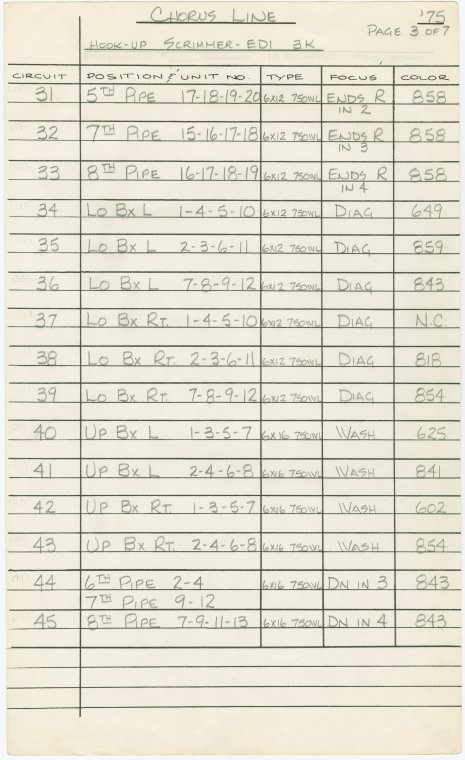 CHORUS LINE '75
PAGE 3 OF 7
HOOK-UP SCRIMMER-EDI 3K
CIRCUIT POSITION & UNIT NO. TYPE FOCUS COLOR
31 5TH PIPE 17-18-19-20 6x12 750WL ENDS R 858
IN 2
32 7TH PIPE 15-16-17-18 6x12 750WL ENDS R 858
IN 3
33 8TH PIPE 16-17-18-19 6x12 750WL ENDS R 858
IN 4
34 LO BX L 1-4-5-10 6x12 750WL DIAG 649
35 LO BX L 2-3-6-11 6x12 750WL DIAG 859
36 LO BX L 7-8-9-12 6x12 750WL DIAG 843
37 LO BX RT. 1-4-5-10 6x12 750WL DIAG N.C.
38 LO BX RT. 2-3-6-11 6x12 750WL DIAG 818
39 LO BX RT. 7-8-9-12 6x12 750WL DIAG 854
40 UP BX L 1-3-5-7 6x16 750WL WASH 625
41 UP BX L 2-4-6-8 6x16 750WL WASH 841
42 UP BX RT. 1-3-5-7 6x16 750WL WASH 602
43 UP BX RT. 2-4-6-8 6x16 750WL WASH 854
44 6TH PIPE 2-4 6x16 750WL DN IN 3 843
7TH PIPE 9-12
45 8TH PIPE 7-9-11-13 6x16 750WL DN IN 4 843